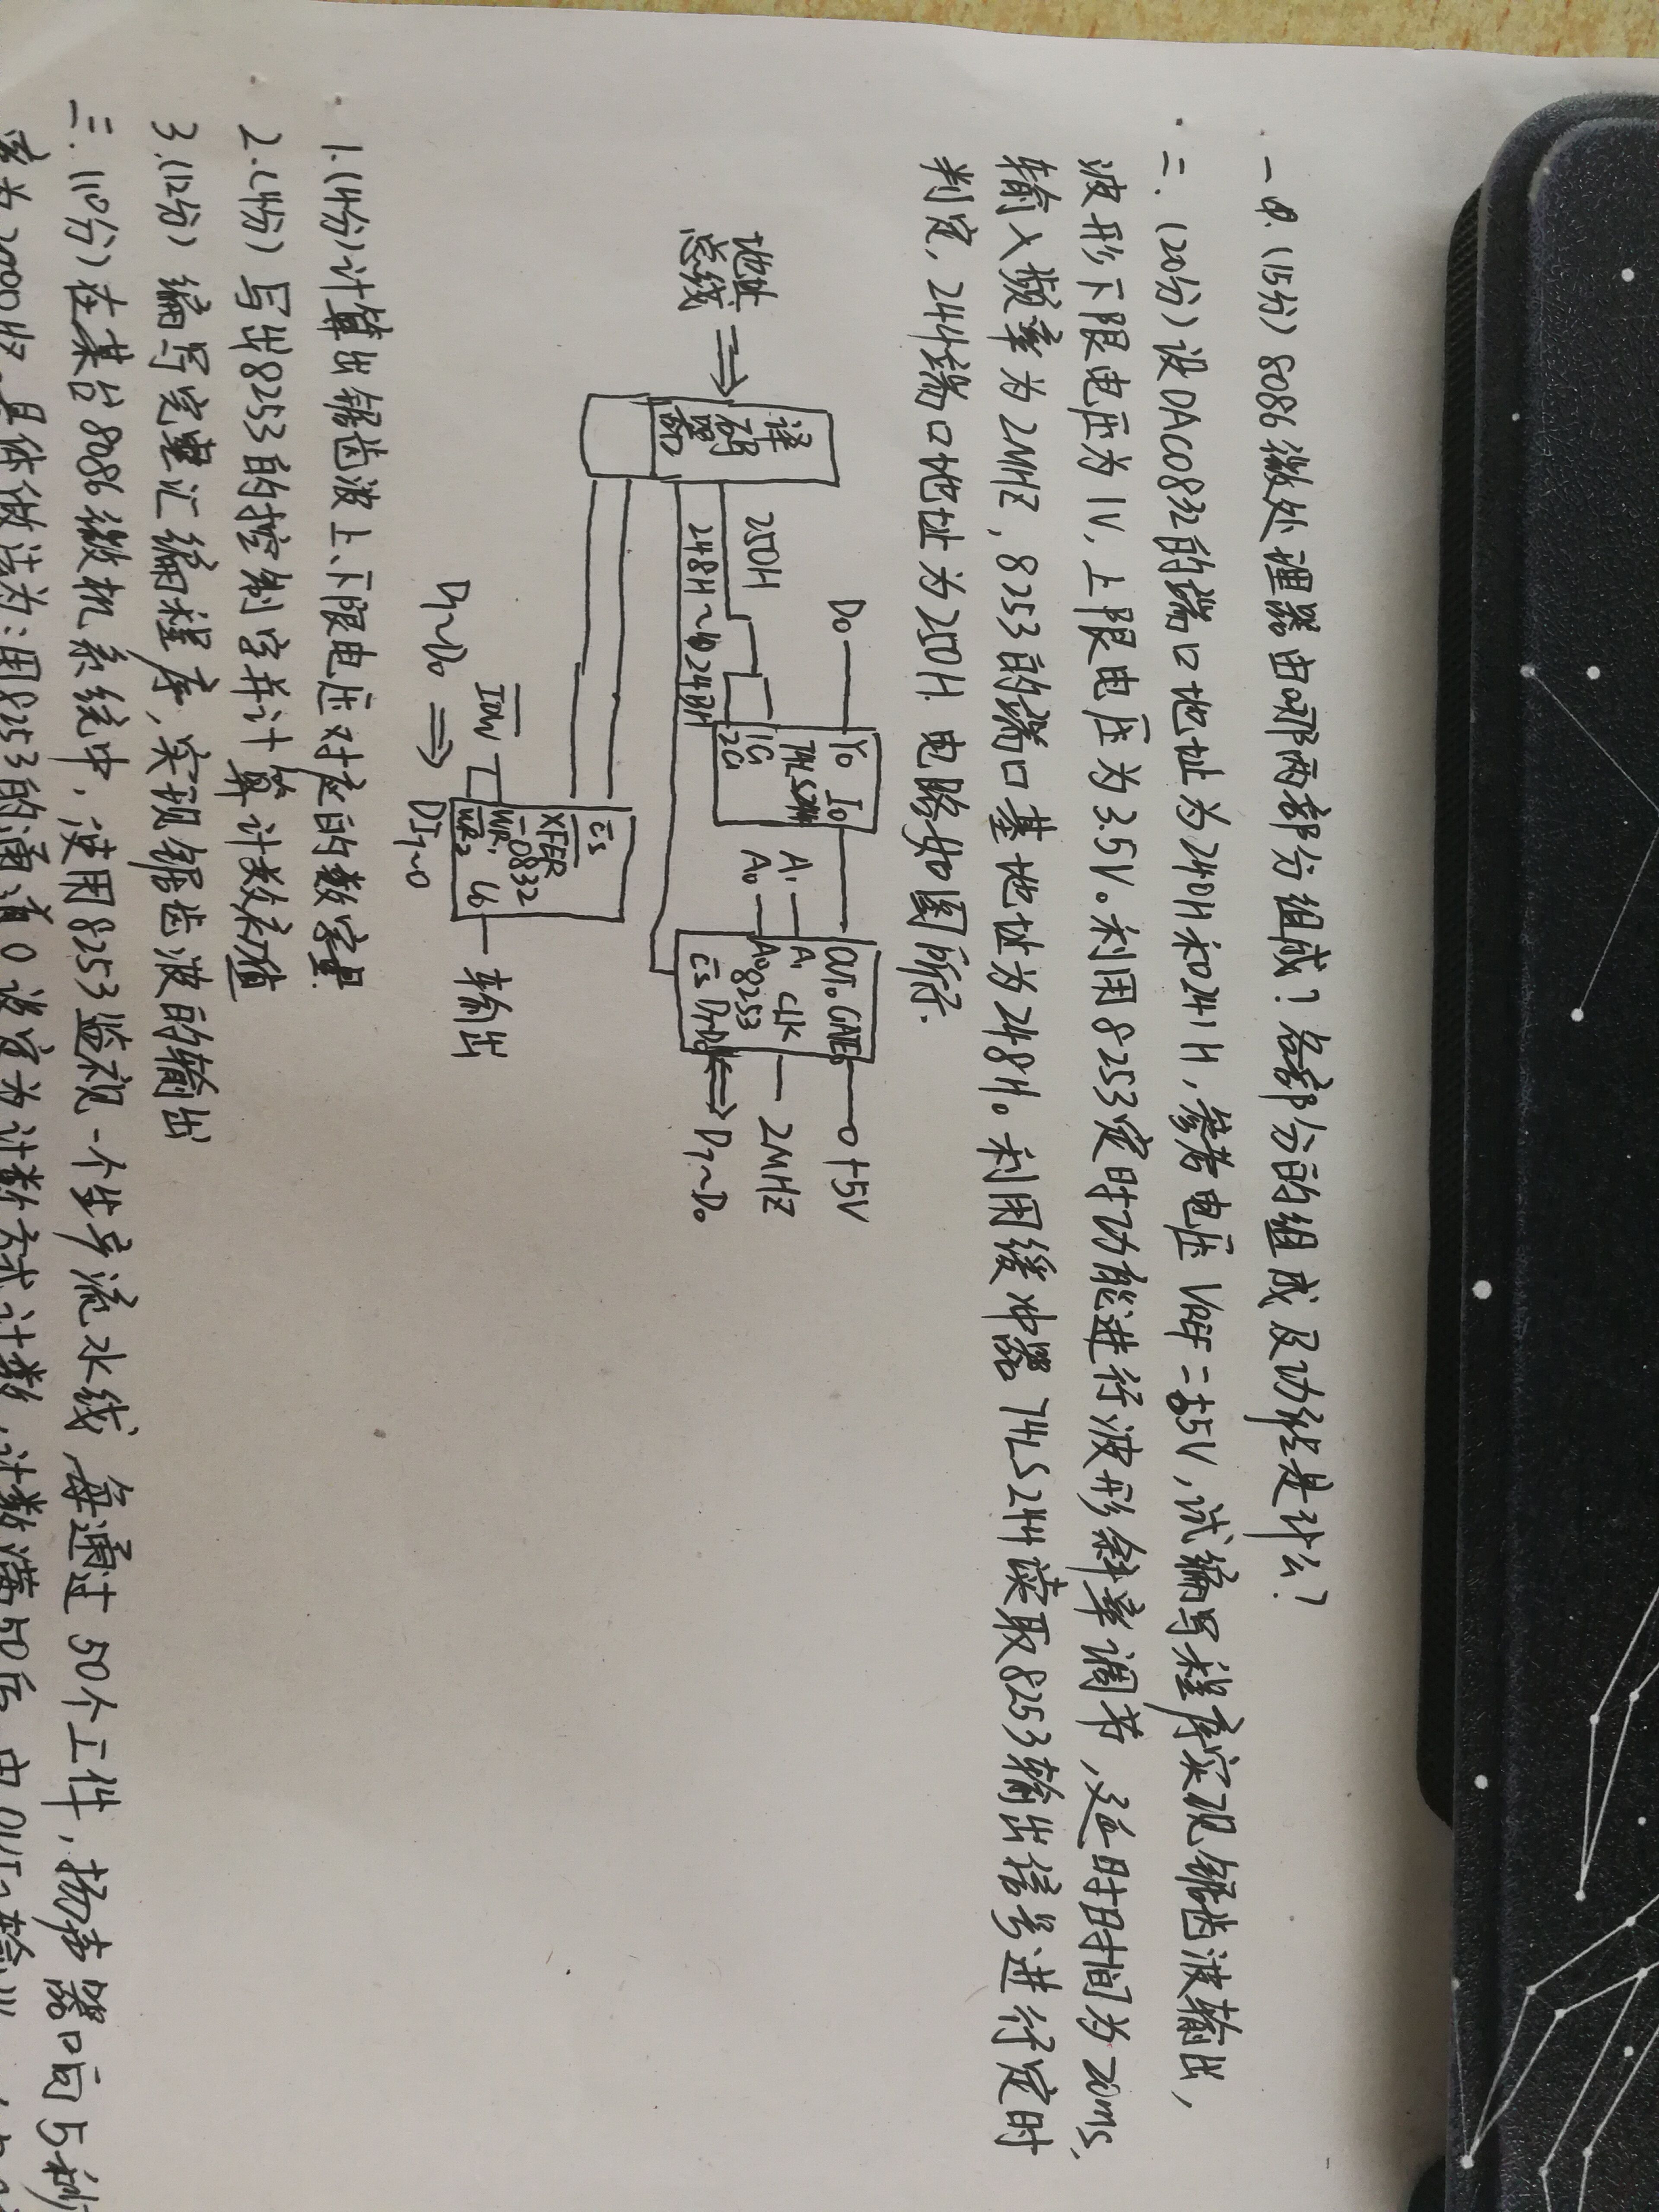 一. (15分) 8086微处理器由哪两部分组成? 各部分的组成及功能是什么?
二. (20分) 设DAC0832的端口地址为240H和241H, 参考电压 VREF=±5V, 试编写程序实现锯齿波输出,
波形下限电压为1V, 上限电压为3.5V。利用8253定时功能进行波形斜率调节, 延时时间为20ms,
输入频率为2MHZ, 8253的端口基地址为248H。利用缓冲器 74LS244读取8253输出信号进行定时
判定, 244端口地址为250H. 电路如图所示.
D0 Y0 I0 OUT0 GATE0 +5V
74LS244
A1 A1 CLK 2MHZ
A0 A0 8253
1G
2G
C̅S̅ D7~D0 D7~D0
地址
总线
译
码
器
250H
248H~24BH
C̅S̅
X̅F̅E̅R̅
0832
I̅O̅W̅ W̅R̅1 U0 输出
W̅R̅2
D7~D0 DI7~0
1.(4分)计算出锯齿波上、下限电压对应的数字量.
2.(4分) 写出8253的控制字并计算计数初值
3.(12分) 编写完整汇编程序, 实现锯齿波的输出
三. (10分) 在某台8086微机系统中, 使用8253监视一个生产流水线, 每通过 50个工件, 扬声器响5秒
率为2000HZ. 具体做法为: 用8253的通道0设定为计数方式计数, 计数满50后, 由OUT0输出